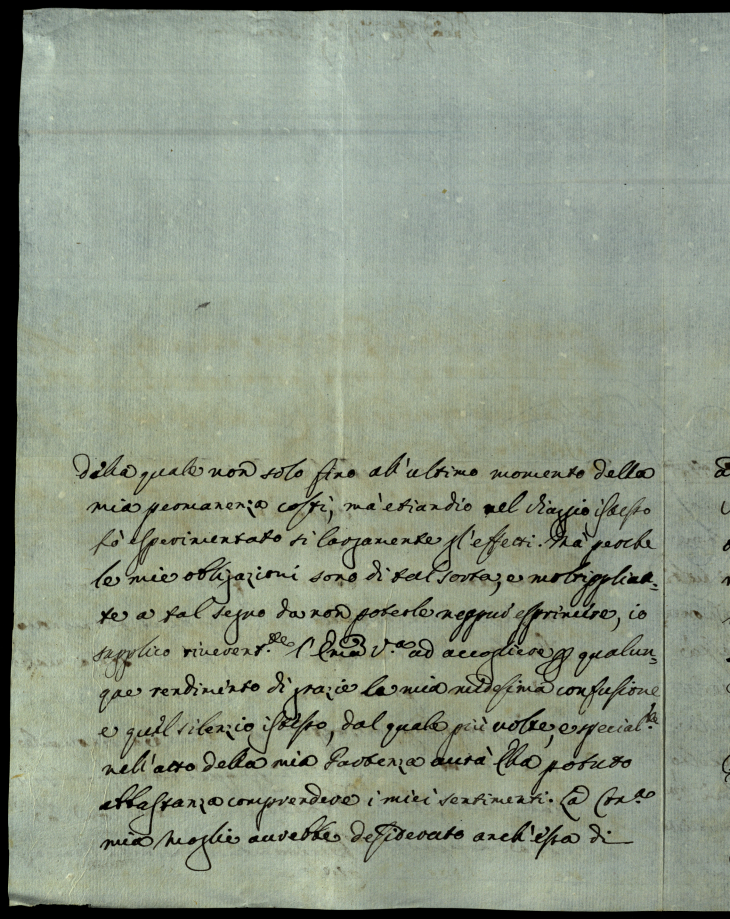 della quale non solo fino all'ultimo momento della
mia permanenza costì, mà etiandio nel Viaggio istesso
hò esperimentato sì largamente gl'effetti. Mà perche
le mie obligazioni sono di tal sorta, e moltiplica-
te a tal segno da non poterle neppur esprimere, io
supplico riverent.te l'Emza V.a ad accogliere per qualun-
que rendimento di grazie la mia medesima confusione
e quel silenzio istesso, dal quale più volte, e special.te
nell'atto della mia Partenza aurà Ella potuto
abbastanza comprendere i miei sentimenti. La
mia Moglie aurebbe desiderato anch'essa di